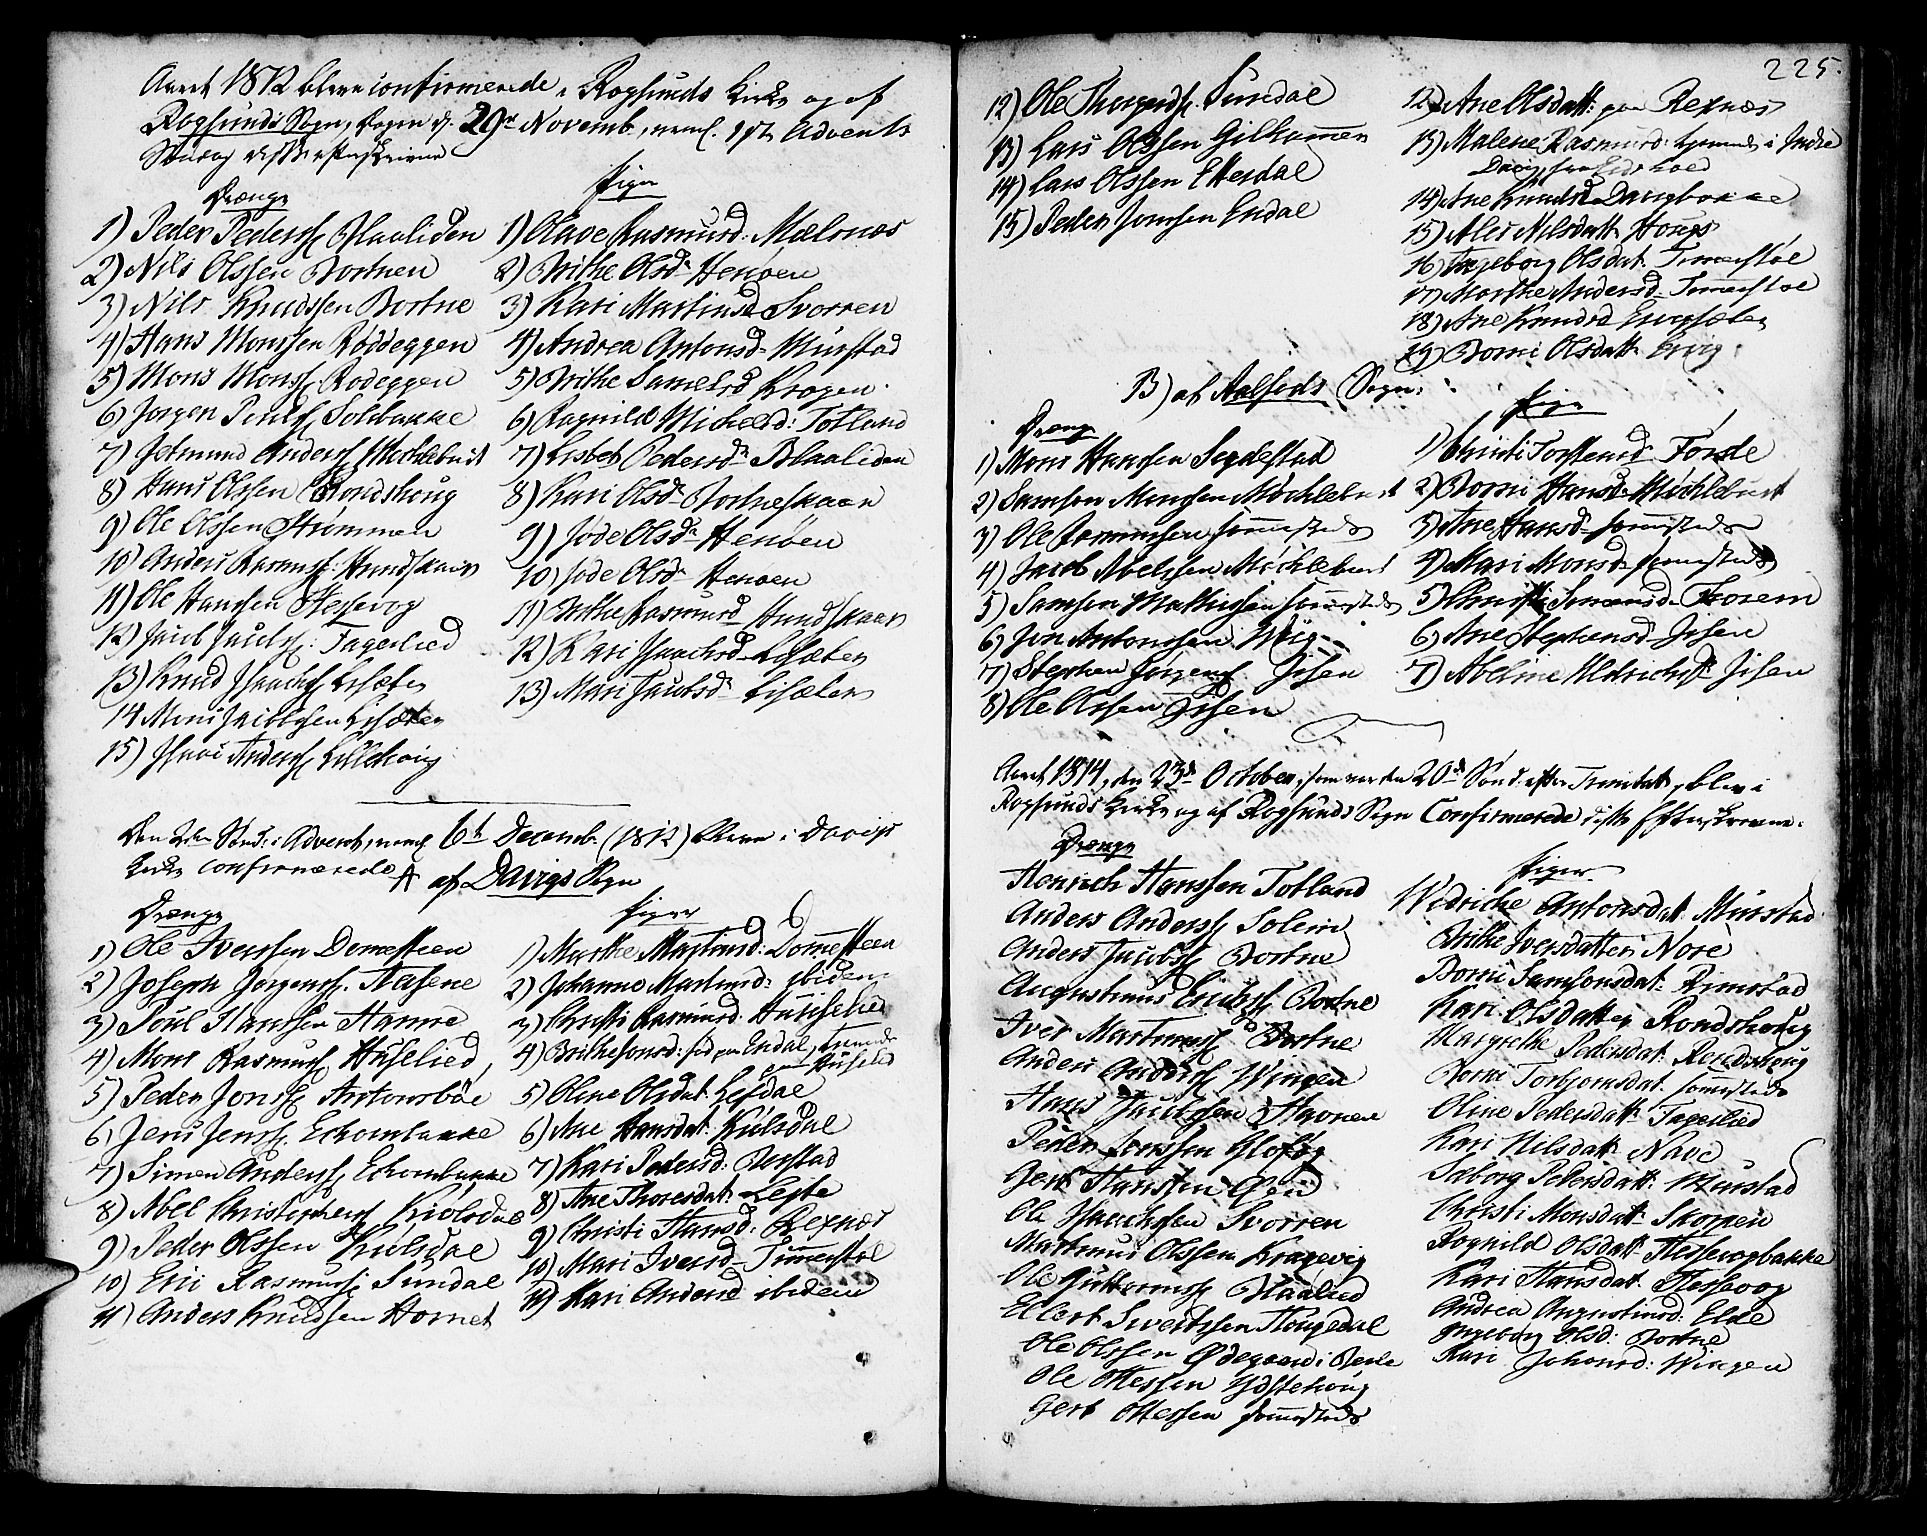 Aaret 1812 bleve confirmerede i Rugsunds Kirke og af
Rugsunds Sogn, Dagen d. 29de Novemb., neml. 1ste Advents
Søndag
Drænge
1) Peder Peders. Blaaliden
2) Nils Olssen Bortnen
3) Nils Knudssen Bortne
4) Hans Monssen Røddeggen
5) Mons Monss. Rodeggen
6) Jørgen Peders. Solbakke
7) Jetmund Anders. Møchlebust
8) Hans Olssen Rondshoug
9) Ole Olssen Strømmen
10 Anders Rasmuss: Hundskaar
11) Ole Hanssen Hessevog
12) Jacob Jacobs. Fagerlied
13) Knud Isaachs. Lisæter
14 Mons Jacobssen Lisæter
15) Isaac Anders. Lillehoug
Piger
1) Olave Rasmusd: Mælsnæs
2) Brithe Olsd. Henøen
3) Kari Martinusd Svorren
4) Andrea Antonsd. Murstad
5) Brithe Samelsd Kragen
6) Ragnild Michelsd: Totland
7) Lisbet Pedersdr Blaaliden
8) Kari Olsdr Bortneskaar
9) Jøde Olsdr Henøen
10) Jøde Olsd. Henøen
11) Brithe Rasmusd Hundskaar
12) Kari Isaachsd. Lisæter
13) Mari Jacobsdr Lisæter
Den 2den Sønd: i Advent, neml. 6te Decemb. (1812) bleve i Davigs
Kirke confirmerede A af Davigs Sogn
Drænge
1) Ole Iverssen Domesteen
2) Joseph Jørgenss. Aasene
3) Poul Hanssen Hamre
4) Mons Rasmuss. Huselied
5) Peder Jonss. Antonsbøe
6) Jens Jenss. Echornbakke
7) Simon Anderss. Echornbakke
8) Abel Christophers. Kiolsdal
9) Peder Olssen Kiolsdal
10) Eric Rasmuss. Sundal
11) Anders Knudssen Hornet
Piger
1) Marthe Martinusd: Domesteen
2) Johanne Martinusd: ibidem
3) Christi Rasmusd. Huuselied
4) Brithe Jonsd: fød paa Endal, tienende
paa Huselied
5) Oline Olsdat. Lefdal
6) Ane Hansdat. Kiolsdal
7) Kari Pedersd: Berstad
8) Ane Thoresdat. Leste
9) Christi Hansd: Rexnæs
10) Mari Iversd. Tennestøl
11) Kari Andersd ibidem
225.
12) Ole Thorgerds. Sundal
13) Lars Olssen Gilhammer
14) Lars Olssen Ettesdal
15) Peder Jonssen Endal
12 Ane Olsdatt. paa Rexnæs
13) Malene Rasmusd: hjemme i Indre
14) Ane Knudsd. Davigbakke
15) Ales Nilsdatt. Houge
16) Ingeborg Olsdat. Tennestøl
17) Marthe Andersd. Tennestøl
18) Ane Knudsd. Ervigsæter
19) Borni Olsdatt. Ervig
B) af Aalfods Sogn:
Drænge
1) Mons Hanssen Seydestad
2) Samson Monssen Møchlebust
3) Ole Rasmussen sammesteds
4) Jacob Abelssen Møchlebust
5) Samson Mathiassen sammesteds
6) Jon Antonssen Wiig
7) Stephen Jørgens. Isen
8) Ole Olssen Isen
Piger
1) Christi Torstensd. Førde
2) Borni Hansd. Møchlebust
3) Ane Hansd. sammesteds
4) Mari Monsd. sammesteds
5) Christi Simonsd. Frorem
6) Ane Stephensd. Isen
7) Abelone Uldrichsdr Isen
Aaret 1814, den 23de October, som var den 20de Sønd: efter Trinitat., blev i
Rugsunds Kirke og af Rugsunds Sogn Confirmerede disse Efterskrevne:
Drænge
Henrich Hanssen Totland
Anders Anderss. Solem
Anders Jacobss. Bortne
Augustinus Ericss. Bortne
Iver Martinuss. Bortne
Anders Anderss. Wingen
Hans Jacobssen Havnen
Peder Jonssen Hoftøg
Gert Hanssen Eeid
Ole Isaachssen Svorren
Martinus Olssen Kragevig
Ole Guttormss. Blaalied
Elert Sivertssen Hougedal
Ole Olssen Ødegaard i Berle
Ole Ottessen Ystehoug
Gert Ottessen sammesteds
Piger
Wedriche Antonsdat. Murstad
Brithe Iversdatter Nore
Borni Samsonsdat. Rimstad
Kari Olsdatter Rondshoug
Margrethe Pedersdat. Rendshoug
Borni Torbjornsdat. sammesteds
Oline Pedersdatt. Fagerlied
Kari Nilsdatt. Nave
Sæborg Pedersdatt. Murstad
Christi Monsdat. Skorpen
Rognild Olsdatt. Hessevogbakke
Kari Hansdat. Hessevog
Andrea Augustinusd: Elde
Ingeborg Olsd: Bortne
Kari Johansd: Wingen